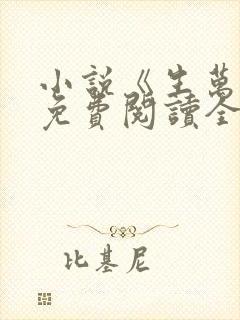 小說《生萬
免費閱讀全
比基尼